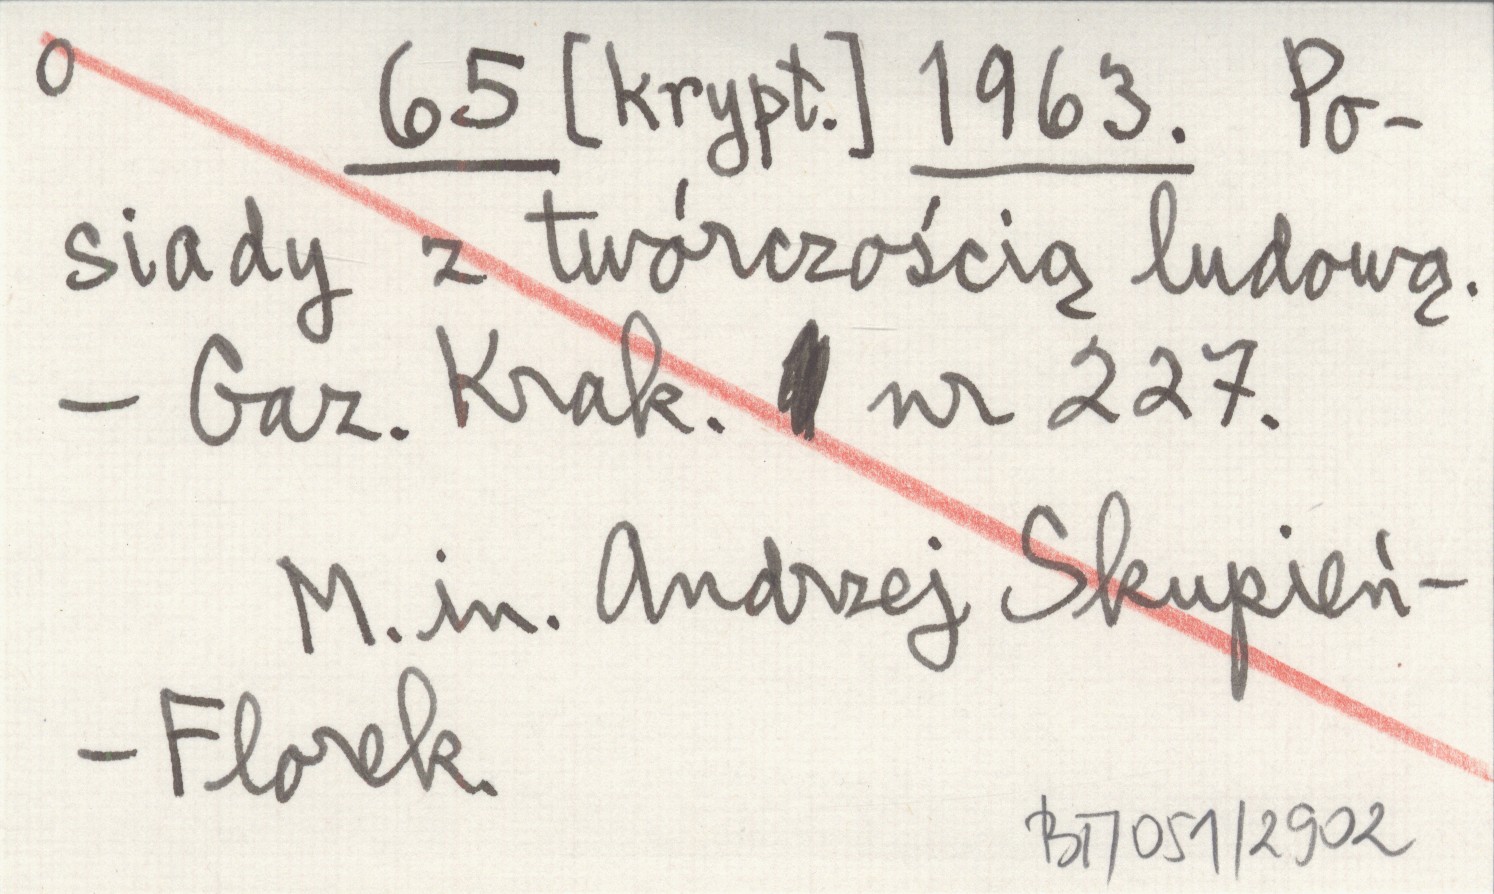 O 65 [krypt.] 1963. Po-
siady z twórczością ludową.
- Gaz. Krak. nr 227.
M. in. Andrzej Skupień-
- Florek.
BT/051/2902